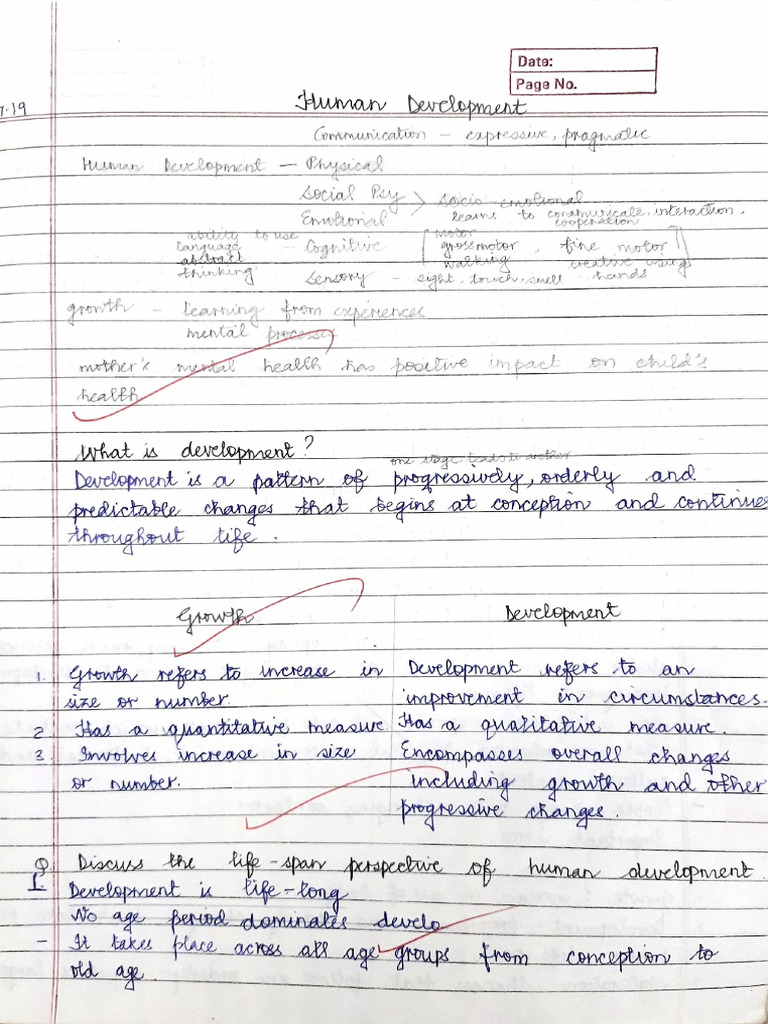 Date:
Page No.
7-19
Human Development
Communication - expressive, pragmatic
Human Development - Physical
Social Psy > socio-emotional
Emotional learns to communicate, interaction, cooperation
ability to use
language - Cognitive
abstract
thinking
[motor
grossmotor, fine motor]
walking creative using
hands
Sensory - sight, touch, smell
growth - learning from experiences
mental processes
mother's mental health has positive impact on child's
health
What is development?
one stage leads to another
Development is a pattern of progressively, orderly and
predictable changes that begins at conception and continues
throughout life.
Growth Development
1. Growth refers to increase in Development refers to an
size or number. improvement in circumstances.
2 Has a quantitative measure Has a qualitative measure.
3. Involves increase in size Encompasses overall changes
or number. including growth and other
progressive changes.
Q Discuss the life-span perspective of human development.
1. Development is life-long
No age period dominates develo
- It takes place across all age groups from conception to
old age.